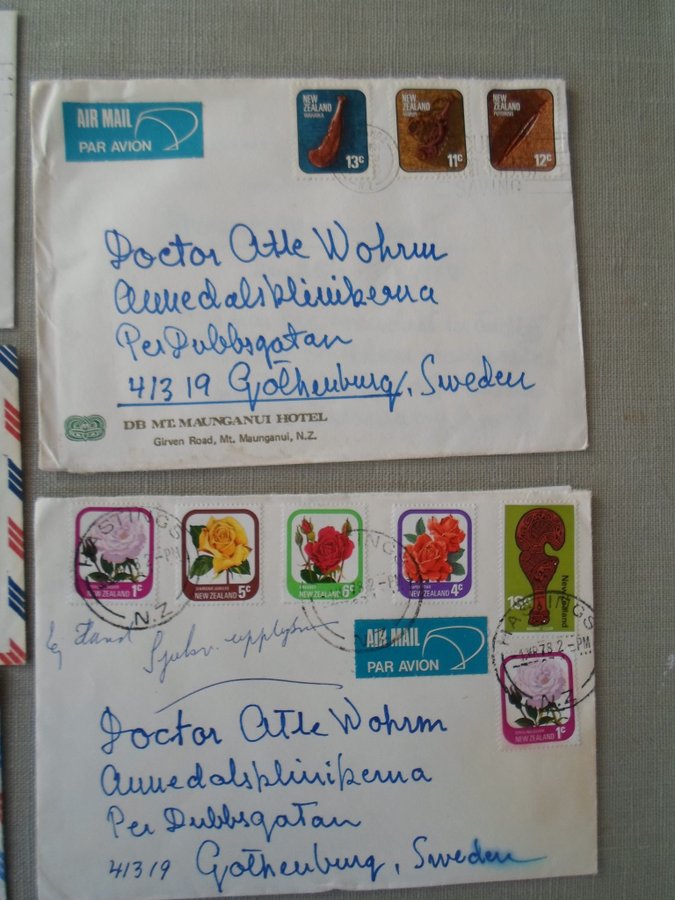 AIR MAIL
PAR AVION
NEW ZEALAND
WAHAIKA
13c
NEW ZEALAND
11c
NEW ZEALAND
12c
Doctor Atle Wohrm
Annedalsklinikerna
Per Dubbsgatan
413 19 Gothenburg, Sweden
DB MT. MAUNGANUI HOTEL
Girven Road, Mt. Maunganui, N.Z.
1c
NEW ZEALAND
5c
NEW ZEALAND
6c
NEW ZEALAND
4c
NEW ZEALAND
New Zealand
HASTINGS
2-PM
N.Z
HASTINGS
78 2-PM
N.Z
AIR MAIL
PAR AVION
1c
NEW ZEALAND
Doctor Atle Wohrm
Annedalsklinikerna
Per Dubbsgatan
41319 Gothenburg, Sweden